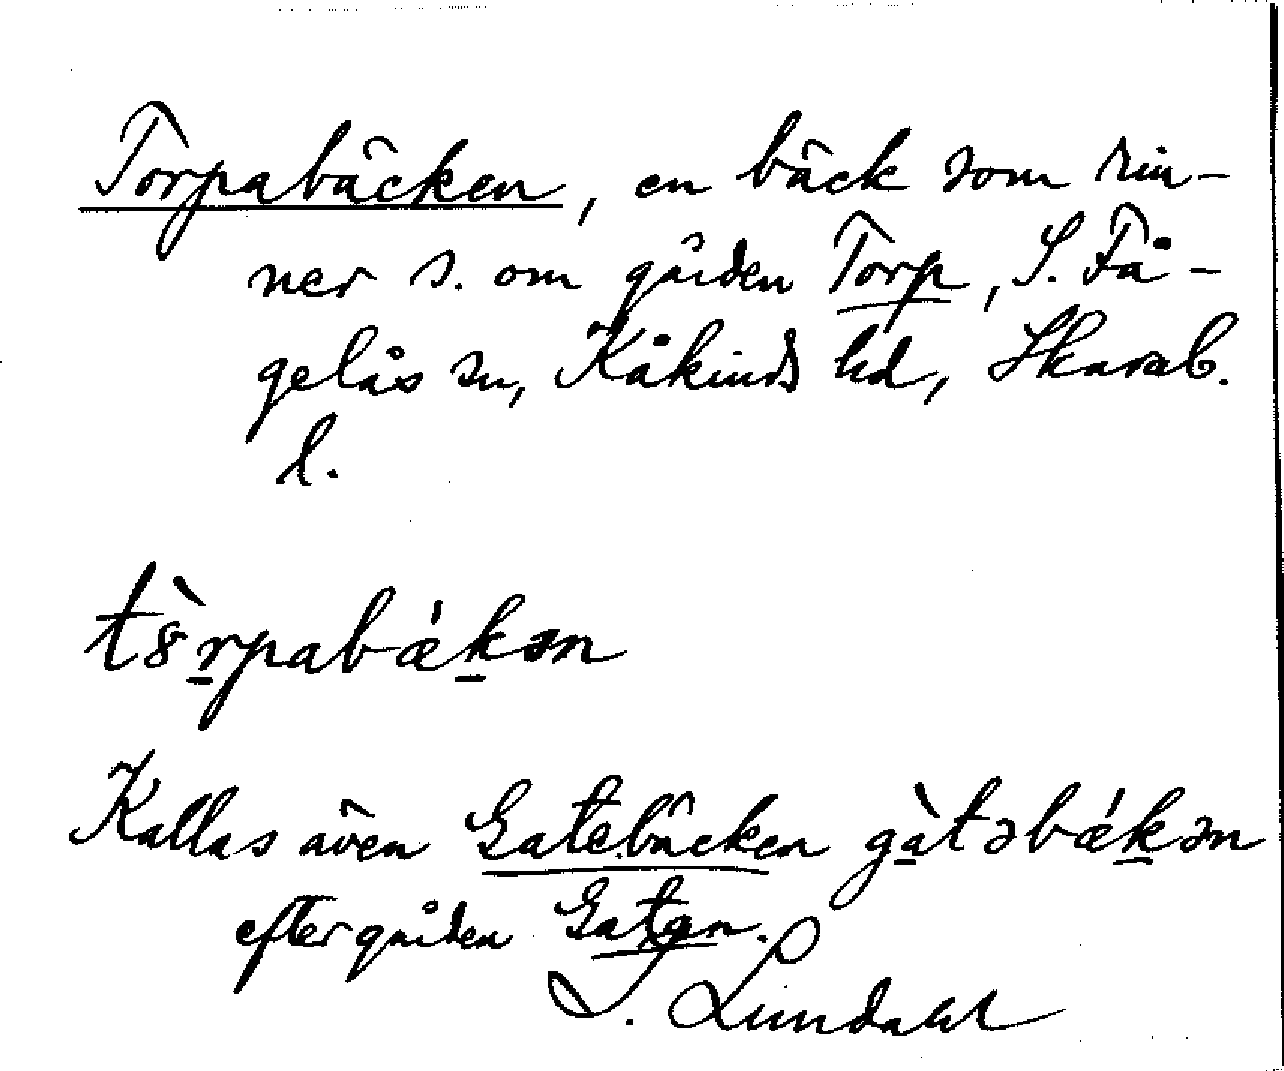 Torpabäcken, en bäck som rin-
ner s. om gården Torp, S. Få-
gelås sn, Kåkinds hd, Skarab.
l.
tȣ̀r̠pabǽk̠ən
Kallas även Gatebäcken gà̠təbǽk̠ən
efter gården Gatan.
I. Lundahl